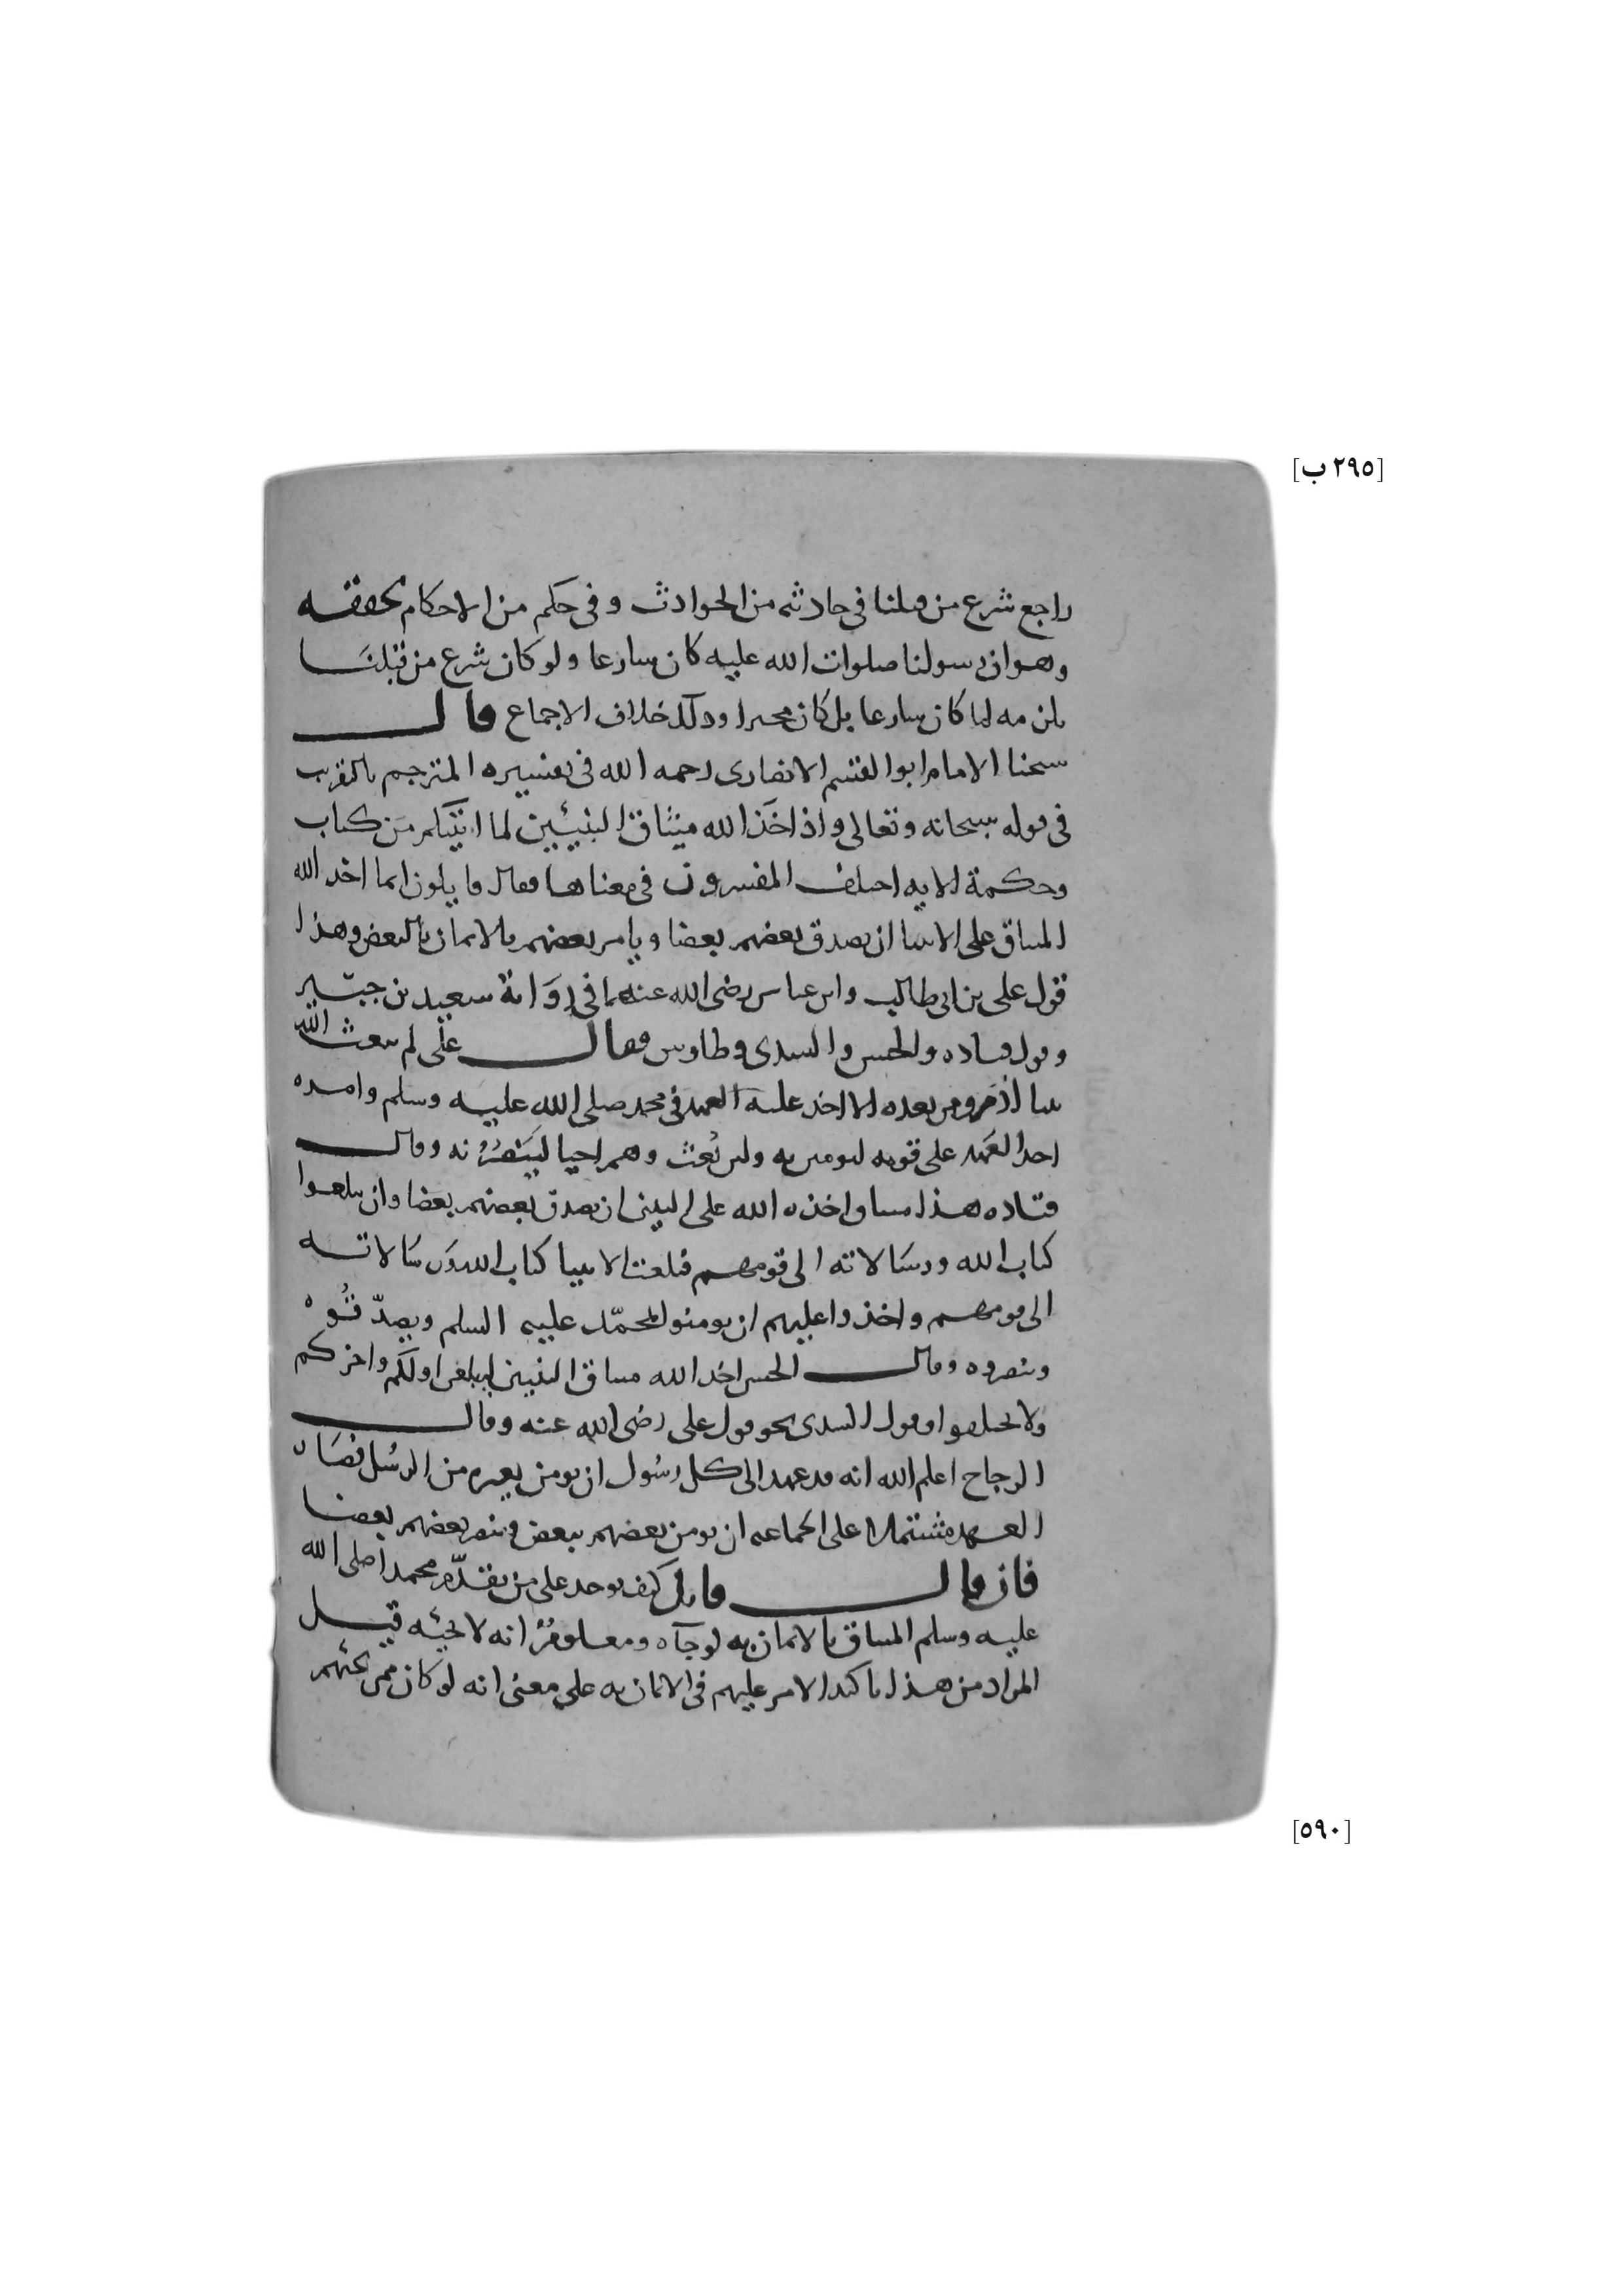 [٢٩٥ ب]
راجع شرع من قبلنا في حادثة من الحوادث وفي حكم من الاحكام يحققه
وهو ان رسولنا صلوات الله عليه كان شارعا ولو كان شرع من قبلنا
يلزمه لما كان شارعا بل كان مخبرا وذلك خلاف الاجماع قال
شيخنا الامام ابو القسم الانصاري رحمه الله في تفسيره المترجم بالتقريب
في قوله سبحانه وتعالى واذ اخذ الله ميثاق النبيين لما اتيتكم من كتاب
وحكمة الايه اختلف المفسرون في معناها فقال قايلون انما اخذ الله
الميثاق على الانبيا ان يصدق بعضهم بعضا ويامر بعضهم بالايمان بالبعض وهذا
قول علي بن ابي طالب وابن عباس رضي الله عنهما في رواية سعيد بن جبير
وقول قتاده والحسن والسدي وطاوس فقال علي لم يبعث الله
نبيا ادم ومن بعده الا اخذ عليه العهد في محمد صلى الله عليه وسلم وامره
اخذ العهد على قومه ليومنن به ولئن بعث وهم احيا لينصرنه وقال
قتاده هذا ميثاق اخذه الله على النبيين ان يصدق بعضهم بعضا وان يبلغوا
كتاب الله ورسالاته الى قومهم فبلغت الانبيا كتاب الله ورسالاته
الى قومهم واخذوا عليهم ان يومنوا لمحمد عليه السلم ويصدقوه
وينصروه وقال الحسن اخذ الله ميثاق النبيين ليبلغن اولكم واخركم
ولا تختلفوا وقول السدي نحو قول علي رضي الله عنه وقال
الزجاج اعلم الله انه قد عهد الى كل رسول ان يومن بغيره من الرسل فصار
العهد مشتملا على الجماعه ان يومن بعضهم ببعض وينصر بعضهم بعضا
فان قال قايل كيف يوخذ على من تقدم محمدا صلى الله
عليه وسلم الميثاق بالايمان به لو جآه ومعلوم انه لا يجيئه قيل
المراد من هذا تاكيد الامر عليهم في الايمان به على معنى انه لو كان ممن يجئهم
[٥٩٠]